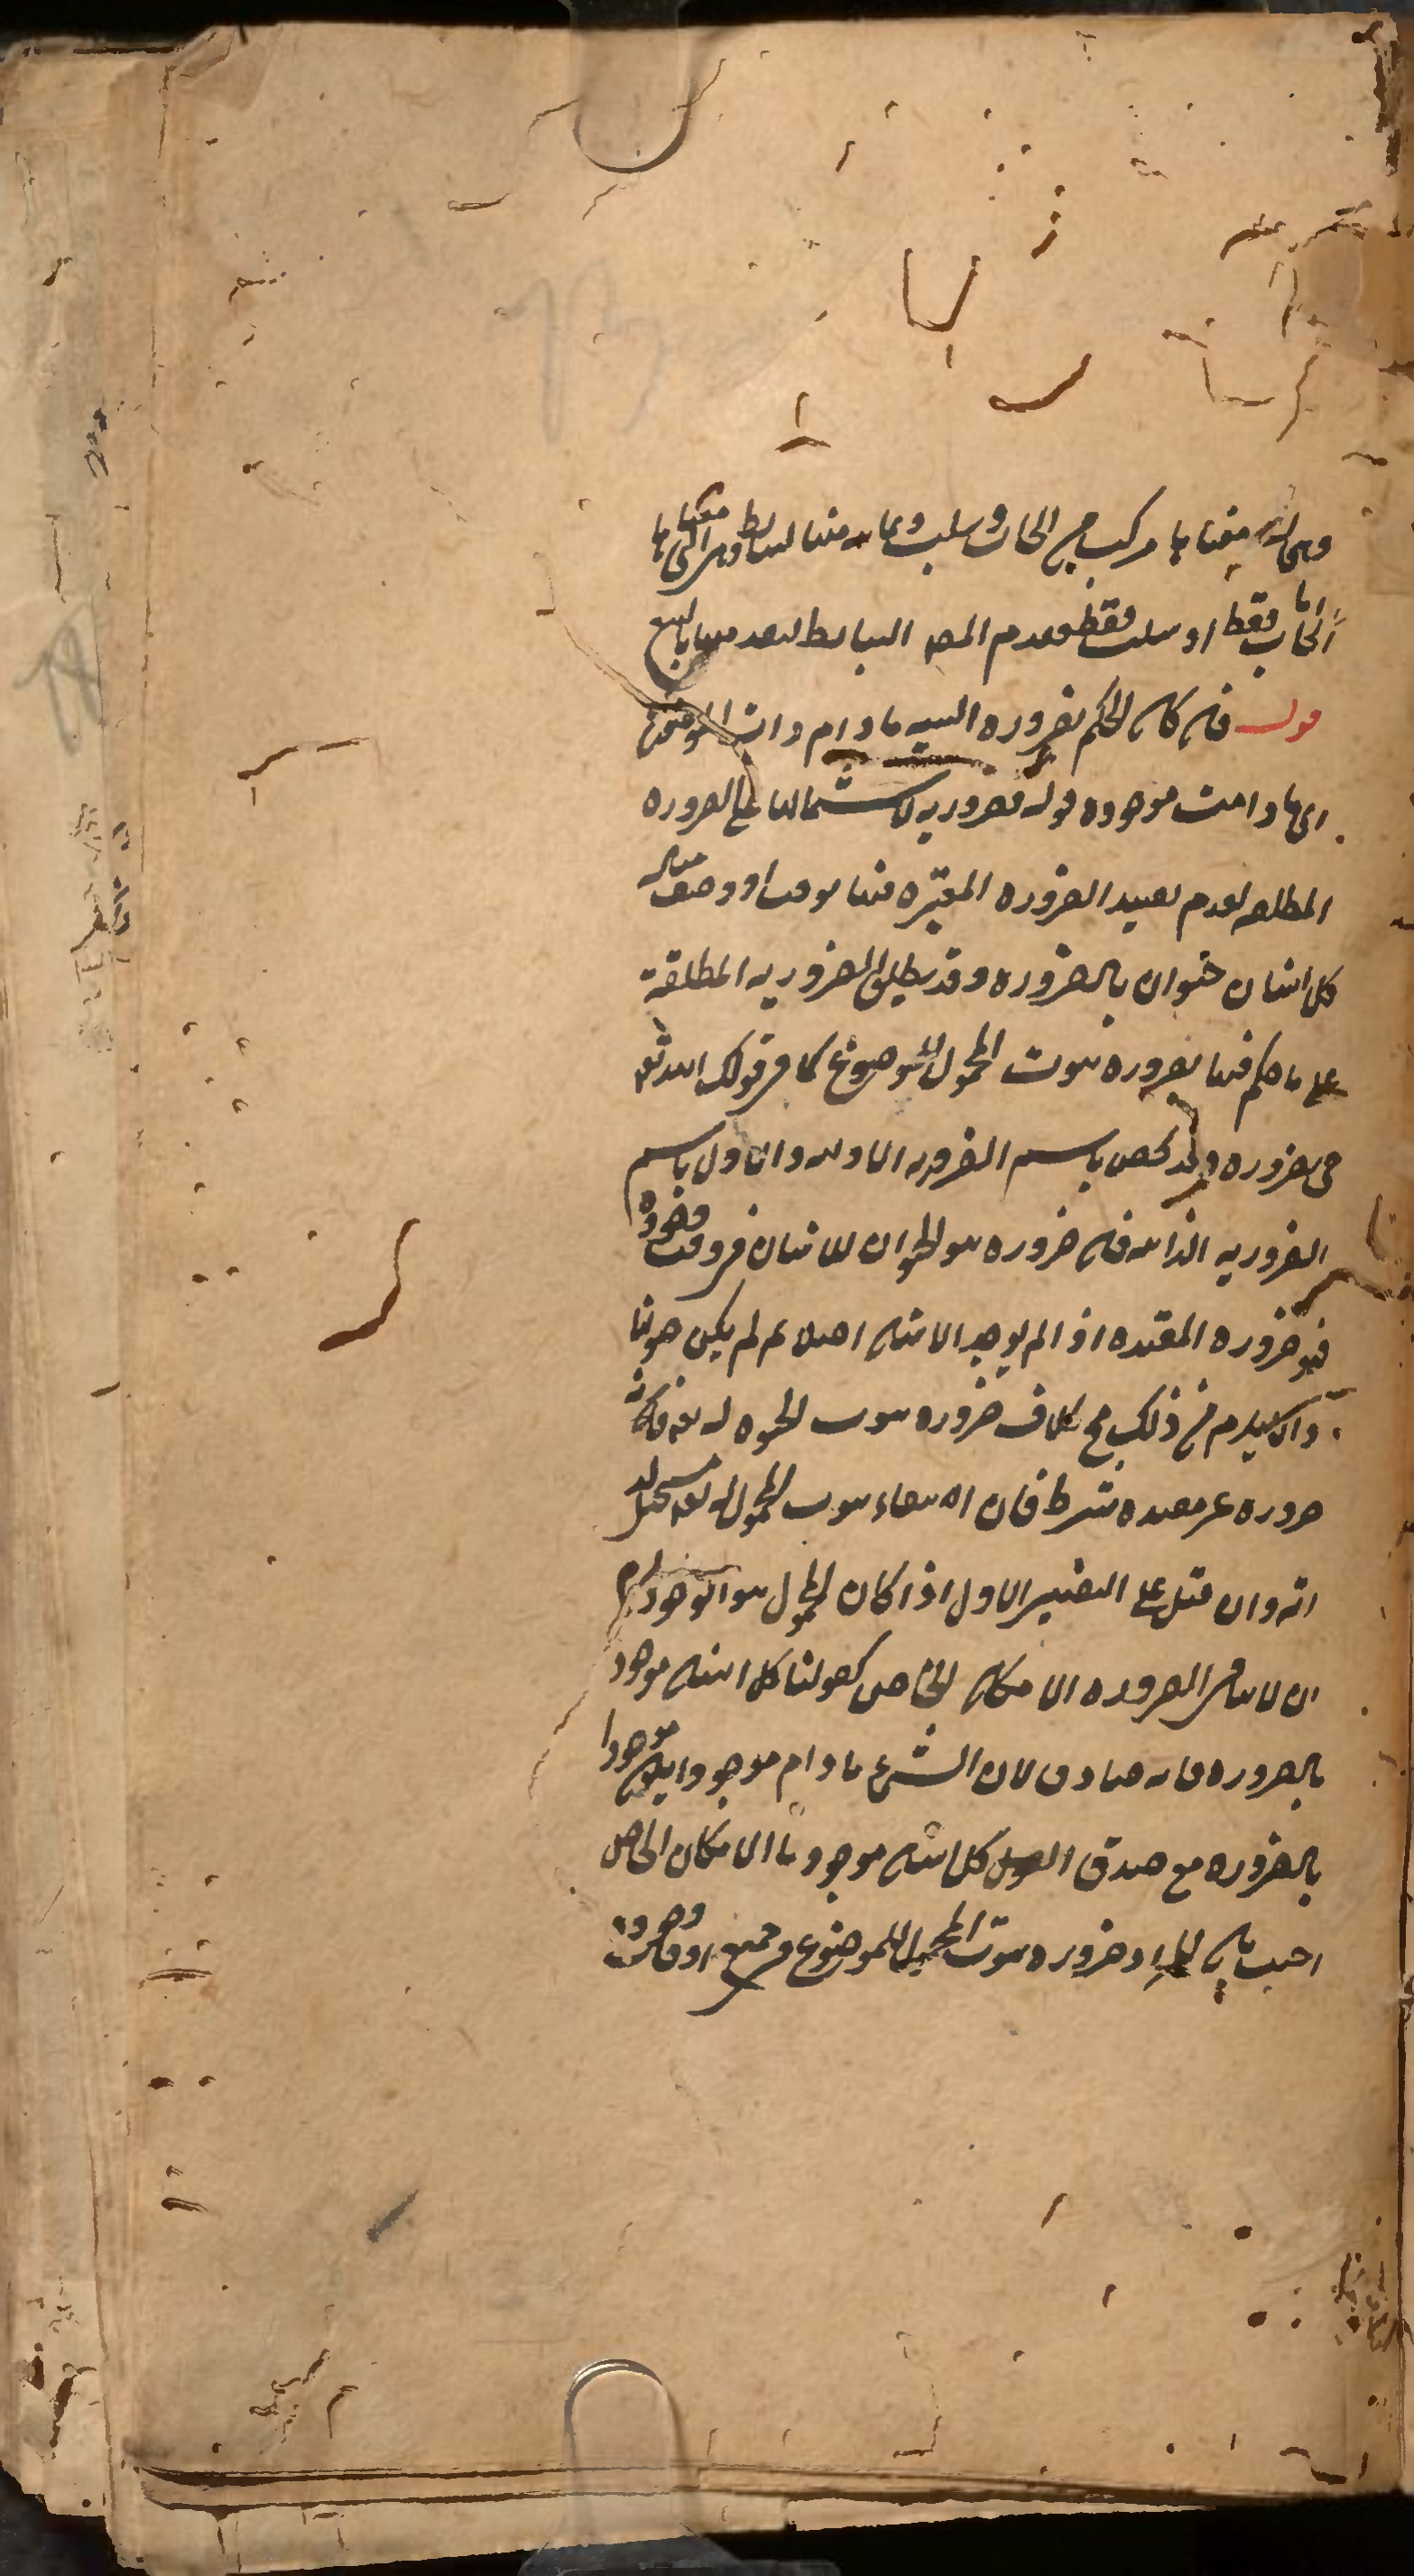 وهى التى معناها مركب من ايجاب وسلب وعامه منها لبسايط وهى التى معناها
اما ايجاب فقط او سلب فقط وقدم المص البسايط لتقدمها بالطبع
قوله فان كان الحكم بضروره النسبه مادام ذات الموضوع
اى مادامت موجوده قوله فضروريه لاشتمالها على الضروره
المطلقه لعدم تقييد الضروره المعتبره فيها بوقت او وصف مثاله
كل انسان حيوان بالضروره وقد يطلق الضروريه المطلقة
على ما حكم فيها بضروره ثبوت المحمول للموضوع كما فى قولك الله تعه
حى بضروره وقد يخص باسم الضروريه الازليه والاول باسم
الضروريه الذاتيه فان ضروره ثبوت الحيوان للانسان فى وقت وجوده
فهو ضروره المقيده اذ لم يوجد الانسان اصلا لم يكن حيوانا
ولا يلزم من ذلك مح بخلاف ضروره ثبوت الحيوه له تعه فانه
ضروره غير مقيده بشرط فان انتفاء ثبوت المحمول له تعه مستحيل لذ
اته وان قيل على التفسير الاول اذا كان المحمول هو الوجود لزم
ان لا ينافى الضروره الامكان الخاص كقولنا كل انسان موجود
بالضروره فانه صادق لان الشىء مادام موجودا يكون موجودا
بالضروره مع صدق القول كل انسان موجود باالامكان الخاص
اجيب بان المراد ضروره ثبوت المحمول للموضوع فى جميع اوقات وجوده